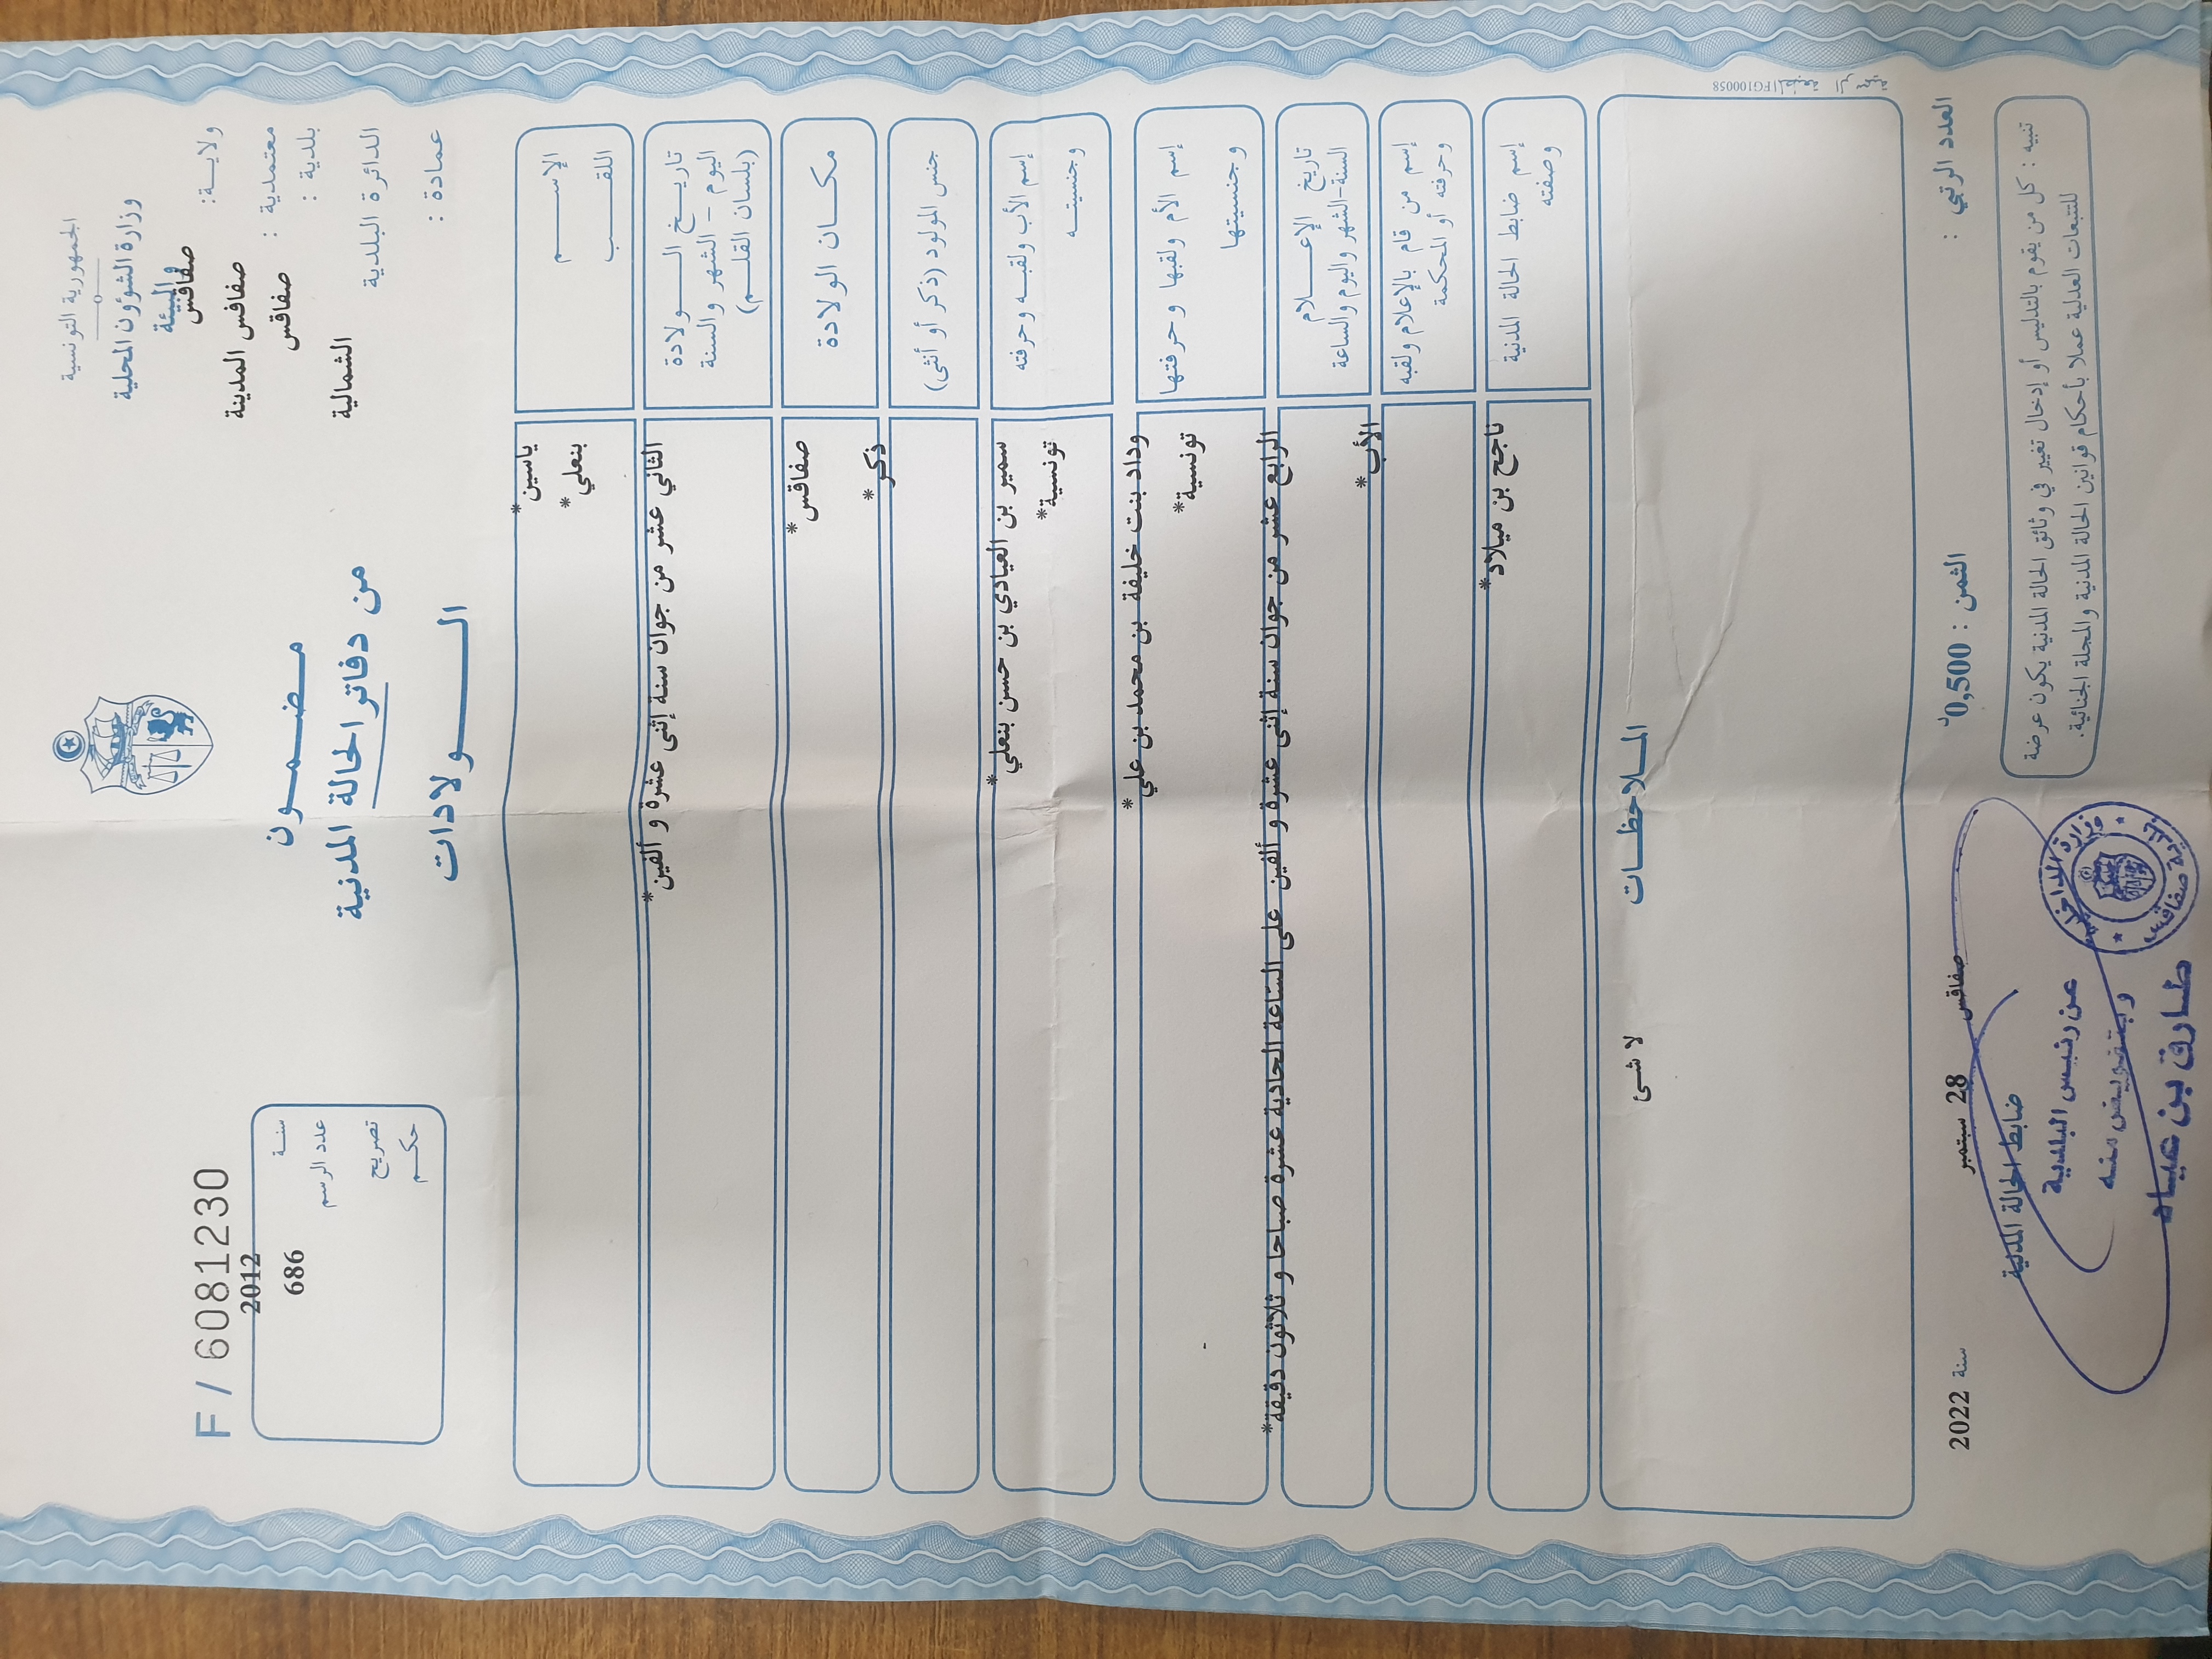 الجمهورية التونسية
وزارة الشؤون المحلية
والبيئة
ولايــة: صفاقس
معتمدية : صفاقس المدينة
بلدية : صفاقس
الدائرة البلدية الشمالية
عمادة :
مـضـمـــون
من دفاتر الحالة المدنية
الـــولادات
F / 6081230
سنــة 2012
عدد الرسم 686
تصريح
حكـم
الإســـم ياسين*
اللقــب بنعلي*
تاريــخ الــولادة الثاني عشر من جوان سنة إثنى عشرة و ألفين*
اليوم - الشهر والسنة
(بلسان القلـم)
مكــان الولادة صفاقس*
جنس المولود (ذكر أو أنثى) ذكر*
إسم الأب ولقبـه وحرفته سمير بن العيادي بن حسن بنعلي*
وجنسيتـه تونسية*
إسم الأم ولقبها وحرفتها وداد بنت خليفة بن محمد بن علي*
وجنسيتها تونسية*
تاريخ الإعــلام الرابع عشر من جوان سنة إثنى عشرة و ألفين على الساعة الحادية عشرة صباحا و ثلاثون دقيقة*
السنة-الشهر واليوم والساعة
إسم من قام بالإعلام ولقبه الأب*
وحرفته أو المحكمة
إسم ضابط الحالة المدنية ناجح بن ميلاد*
وصفته
المـلاحظــات
لا شئ
FG100058
العدد الرتبي :
الثمن : 0,500د
صفاقس 28 سبتمبر سنة 2022
ضابط الحالة المدنية
تنبيه : كل من يقوم بالتدليس أو إدخال تغيير في وثائق الحالة المدنية يكون عرضة
للتتبعات العدلية عملا بأحكام قوانين الحالة المدنية والمجلة الجنائية.
عن رئيس البلدية
وبتفويض منه
طارق بن عياد
وزارة الداخلية
بلدية صفاقس